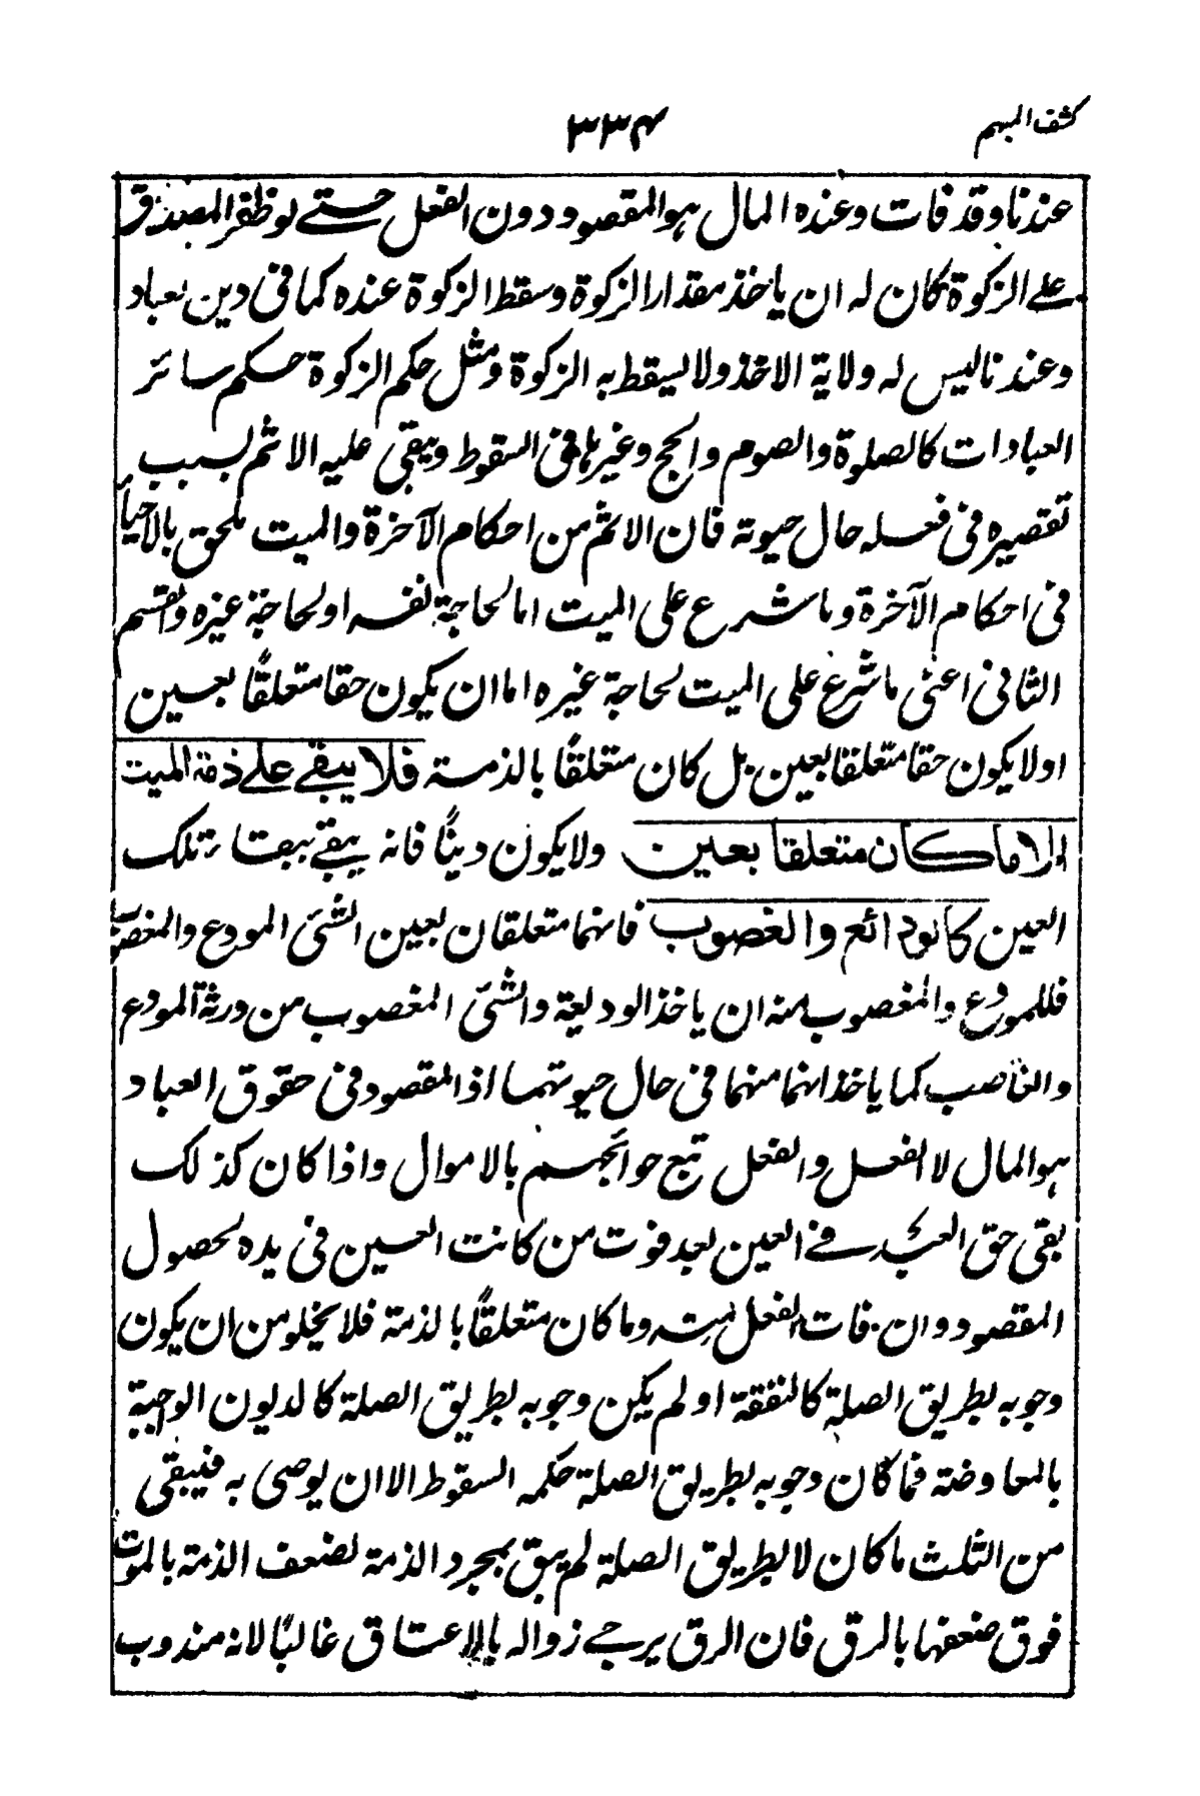 كشف المبهم
۳۳۴
عندنا وقد فات وعنده المال هو المقصود دون الفعل حتے لو ظفر المصدق
علے الزكوة كان له ان ياخذ مقدار الزكوة وسقط الزكوة عنده كما في دين لعباد
وعندنا ليس له ولاية الاخذ ولا يسقط به الزكوة ومثل حكم الزكوة حكم سائر
العبادات كالصلوة والصوم والحج وغيرها في السقوط ويبقى عليه الاثم بسبب
تقصيره في فعله حال حيوته فان الاثم من احكام الآخرة والميت ملحق بالاحيأ
في احكام الآخرة وما شرع على الميت اما لحاجة نفسه او لحاجة غيره والقسم
الثاني اعنى ما شرع على الميت لحاجة غيره اما ان يكون حقا متعلقًا بعين
او لا يكون حقا متعلقا بعين بل كان متعلقًا بالذمة فلا يبقے علے ذمة الميت
الا ما كان متعلقا بعين ولا يكون دينًا فانه يبقے ببقاء تلك
العين كالودائع والغصوب فانهما متعلقان بعين الشئ المودع والمغصوب
فللمودع والمغصوب منه ان ياخذ الوديعة والشئ المغصوب من ورثة المودع
والغاصب كما ياخذانهما منهما في حال حيوتهما اذ المقصود في حقوق العباد
هو المال لا الفعل والفعل تبع حوائجهم بالاموال واذا كان كذلك
بقى حق العبد فے العين بعد فوت من كانت العين في يده لحصول
المقصود وان فات الفعل منه وما كان متعلقًا بالذمة فلا يخلو من ان يكون
وجوبه بطريق الصلة كالنفقة او لم يكن وجوبه بطريق الصلة كالديون الواجبة
بالمعاوضة فما كان وجوبه بطريق الصلة حكمه السقوط الا ان يوصى به فيبقى
من الثلث ما كان لا بطريق الصلة لم يبق بمجرد الذمة لضعف الذمة بالموت
فوق ضعفها بالرق فان الرق يرجے زواله بالاعتاق غالبًا لانه مندوب